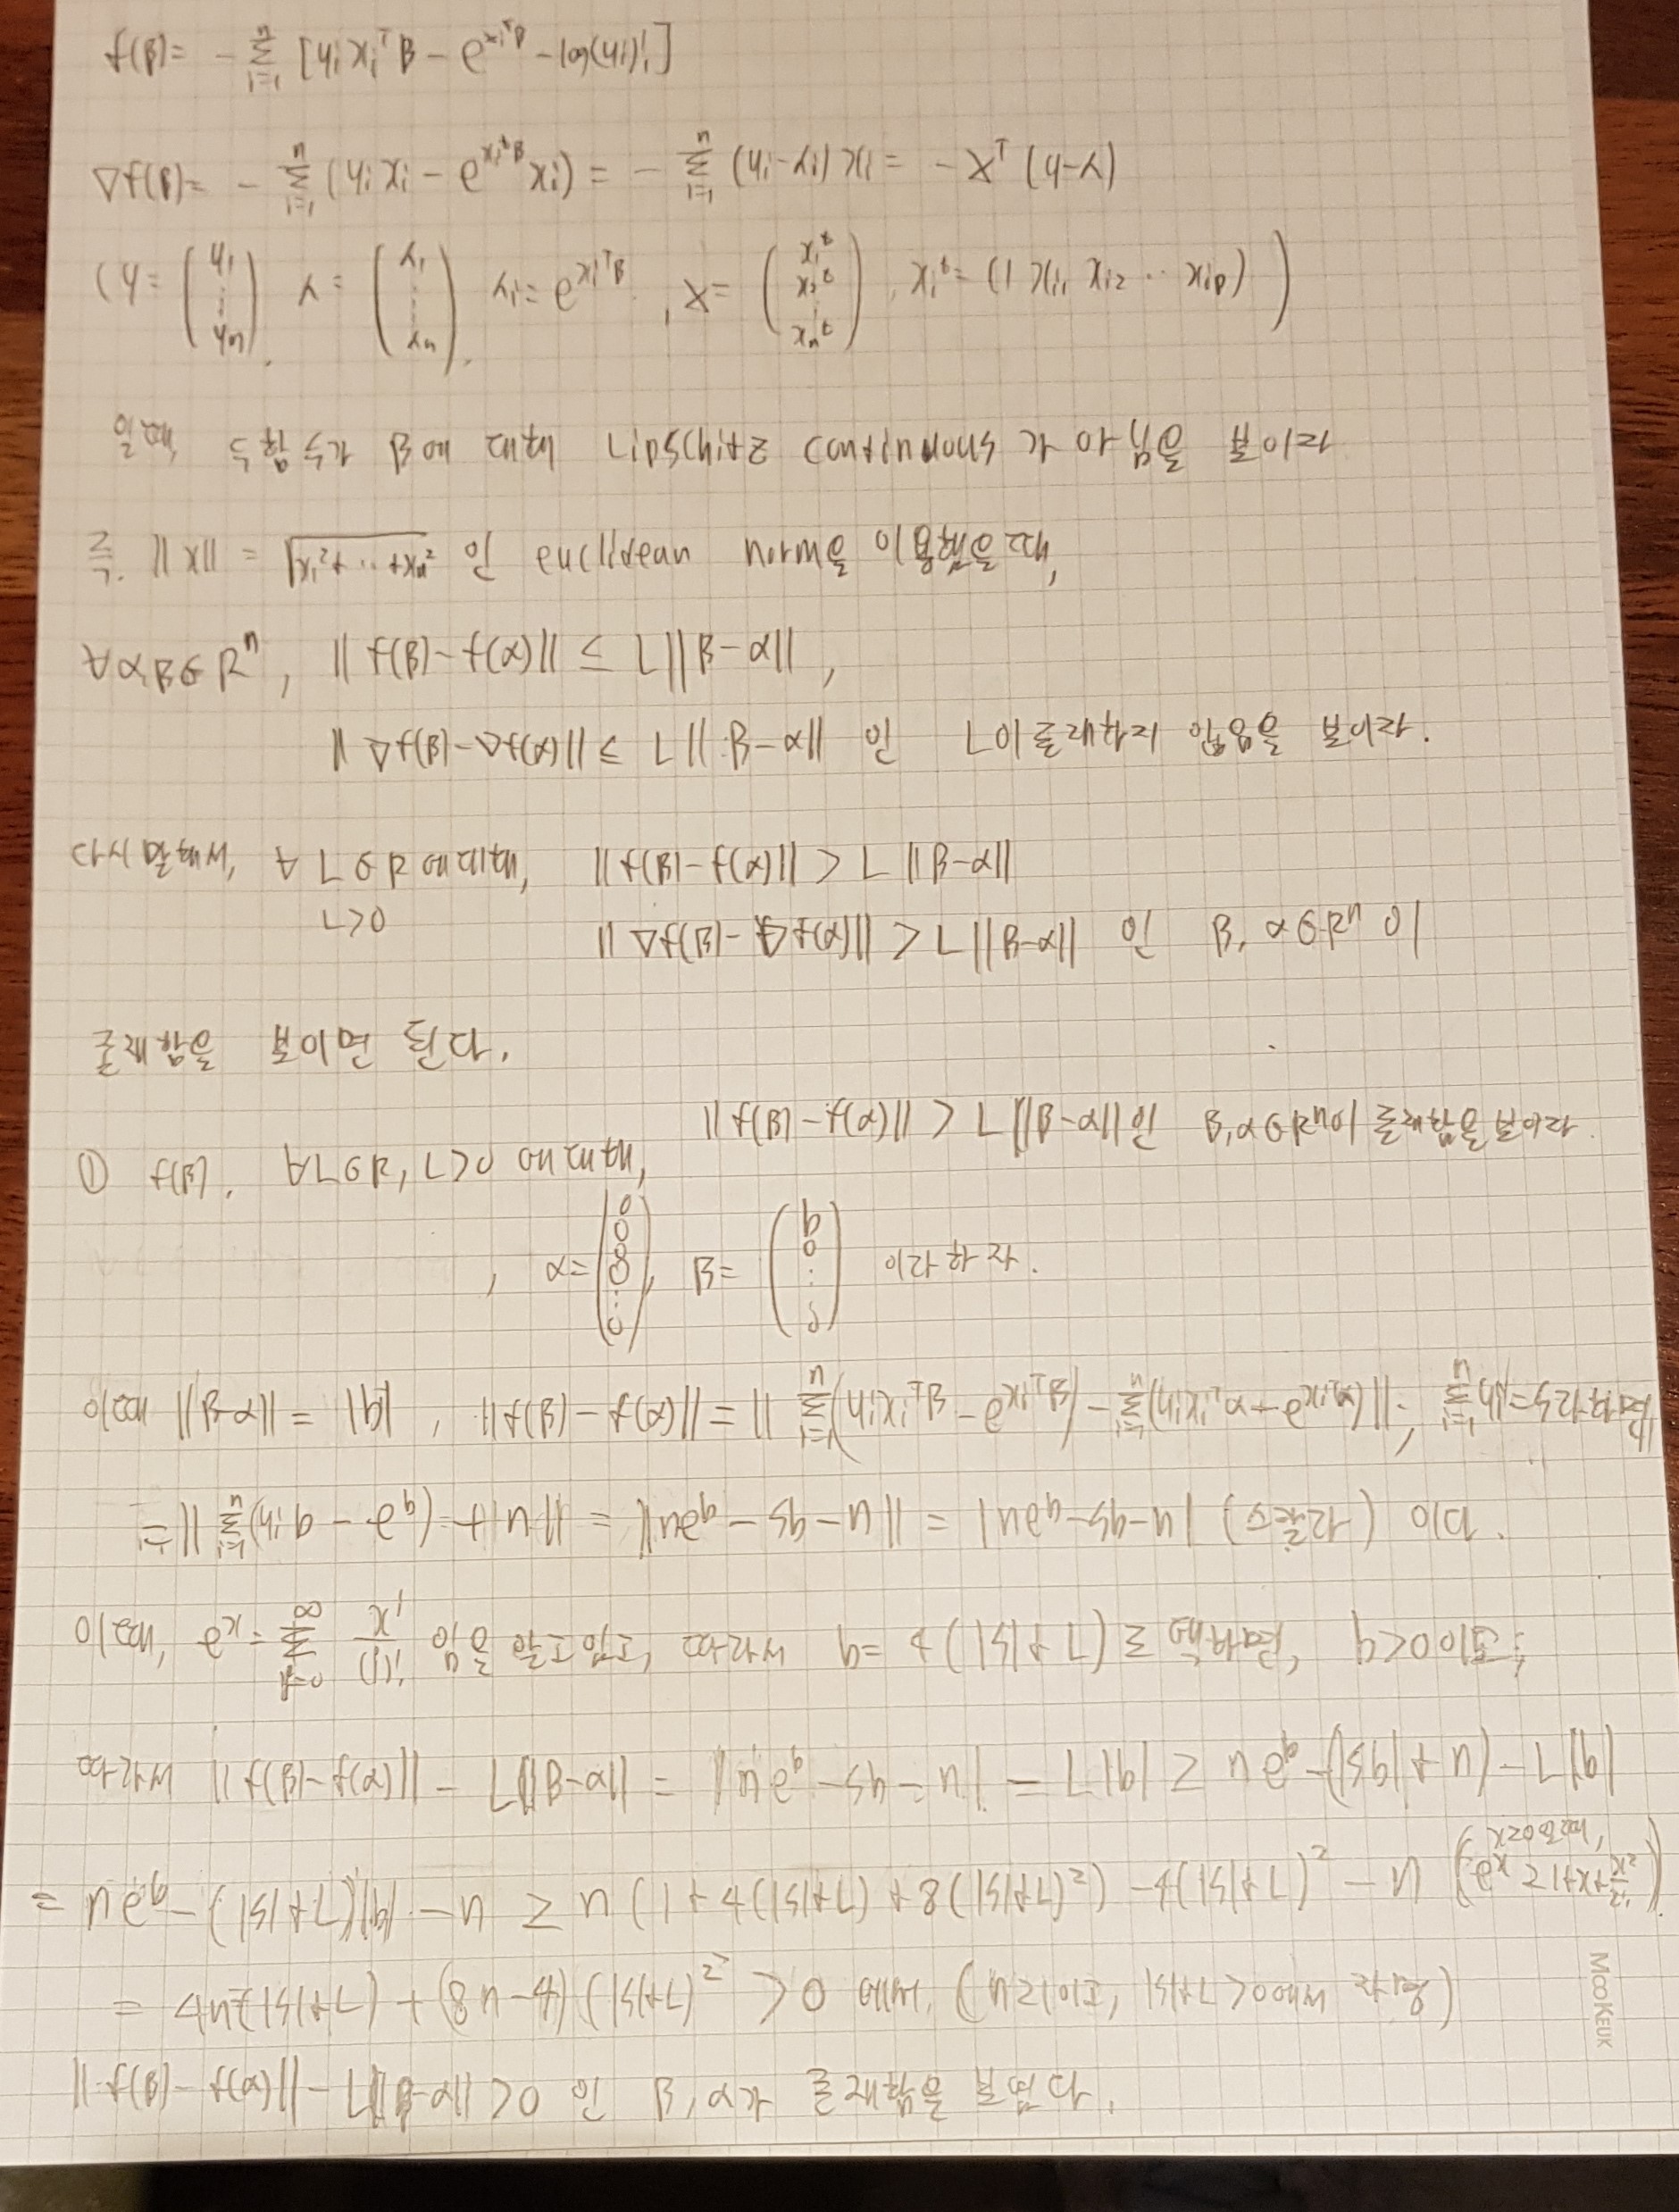 f(β)= - Σ_{i=1}^{n} [y_i x_i^T β - e^{x_i^T β} - log(y_i)!]
∇f(β)= - Σ_{i=1}^{n} (y_i x_i - e^{x_i^t β} x_i) = - Σ_{i=1}^{n} (y_i-λ_i) x_i = - X^T (y-λ)
(y= (y_1 ⋮ y_n), λ= (λ_1 ⋮ λ_n), λ_i= e^{x_i^T β}, X= (x_1^t x_2^t ⋮ x_n^t), x_i^t= (1 x_{i1} x_{i2} ⋯ x_{ip}) )
일때, 두함수가 β에 대해 Lipschitz continuous 가 아님을 보이라
즉. ||x|| = √(x_1^2+ ⋯ +x_n^2) 인 euclidean norm을 이용했을때,
∀α,β∈R^n, ||f(β)-f(α)|| ≤ L||β-α||,
||∇f(β)-∇f(α)|| ≤ L||β-α|| 인 L이 존재하지 않음을 보이라.
다시말해서, ∀ L∈R에대해, ||f(β)-f(α)|| > L ||β-α||
L>0 ||∇f(β)-∇f(α)|| > L||β-α|| 인 β, α∈R^n 이
존재함을 보이면 된다.
① f(β). ∀L∈R, L>0 에대해, ||f(β)-f(α)|| > L||β-α||인 β,α∈R^n이 존재함을보이라.
, α= (0 0 0 ⋮ 0), β= (b 0 ⋮ 0) 이라하자.
이때 ||β-α|| = |b|, ||f(β)-f(α)|| = || Σ_{i=1}^{n}(y_i x_i^T β - e^{x_i^T β}) - Σ_{i=1}^{n}(y_i x_i^T α - e^{x_i^T α}) ||; Σ_{i=1}^{n} y_i=s라하면
= || Σ_{i=1}^{n}(y_i b - e^b) + n || = ||ne^b - sb - n|| = |ne^b-sb-n| (스칼라) 이다.
이때, e^x = Σ_{i=0}^{∞} x^i/(i)! 임을 알고있고, 따라서 b= 4(|s|+L)로 택하면, b>0이고;
따라서 ||f(β)-f(α)|| - L||β-α|| = |ne^b - sb - n| - L|b| ≥ ne^b-(|sb|+n)-L|b|
= ne^b-(|s|+L)|b| - n ≥ n(1+4(|s|+L)+8(|s|+L)^2) -4(|s|+L)^2 - n (x≥0일때, e^x ≥1+x+x^2/2!)
= 4n(|s|+L) + (8n-4)(|s|+L)^2 >0 에서, (n≥1이고, |s|+L>0에서 자명)
||f(β)-f(α)|| - L||β-α|| >0 인 β,α가 존재함을 보였다.
MOOKEUK